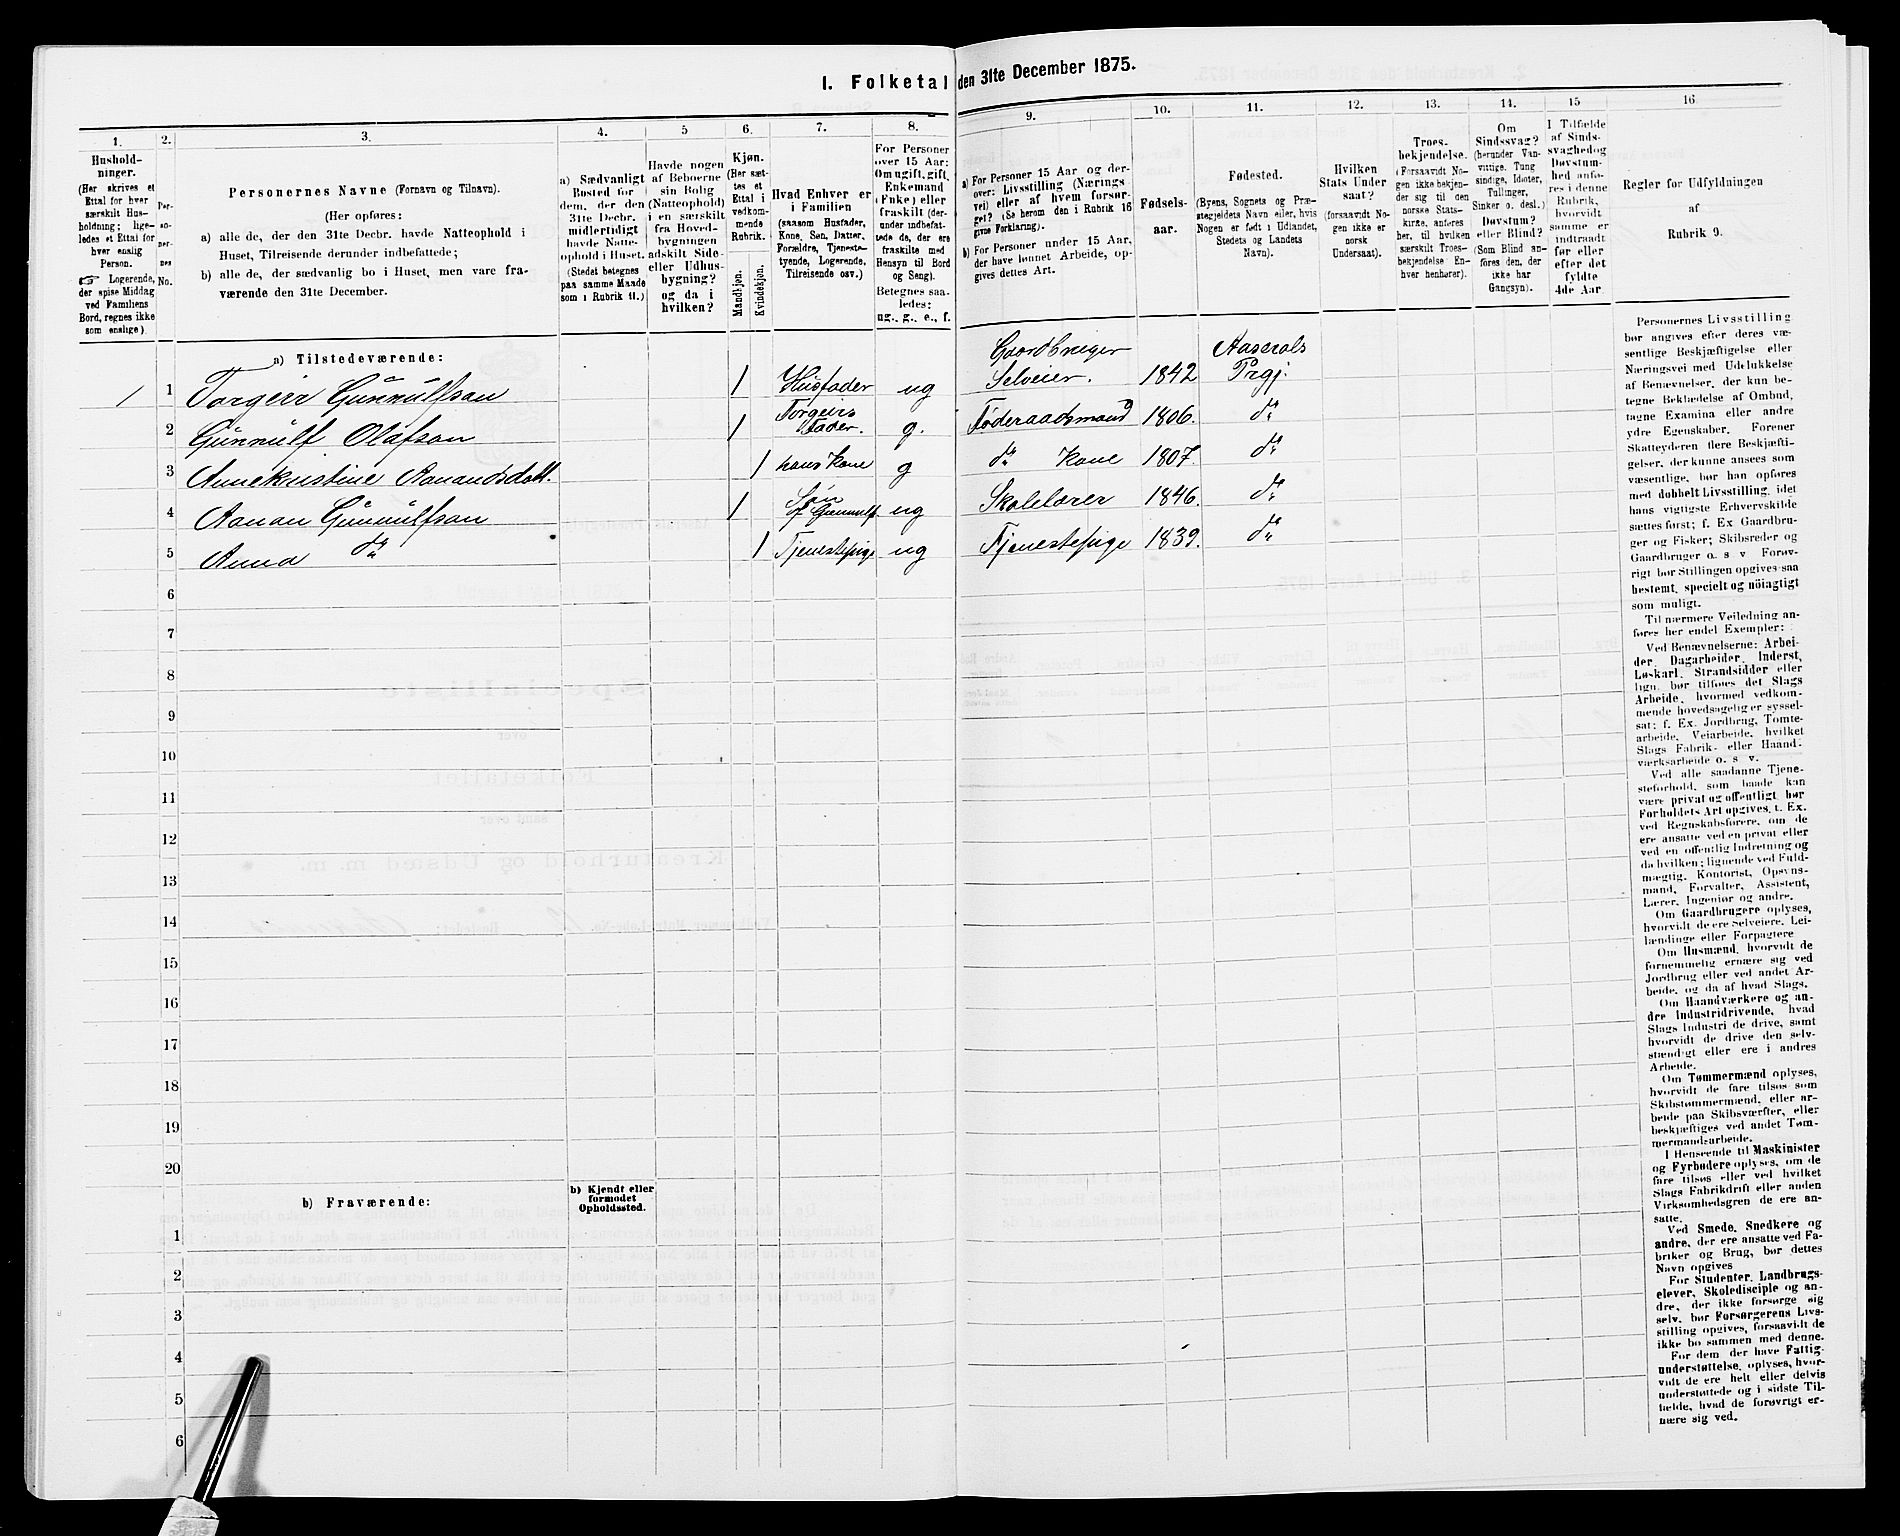 I. Folketal den 31te December 1875.
1. 2. 3. 4. 5 6. 7. 8. 9. 10. 11. 12. 13. 14. 15 16
Hushold-
ninger.
(Her skrives et
Ettal for hver
særskilt Hus-
holdning; lige-
ledes et Ettal for
hver enslig
Person.
☞ Logerende,
der spise Middag
ved Familiens
Bord, regnes ikke
som enslige).
Per-
so-
ner-
nes
No.
Personernes Navne (Fornavn og Tilnavn).
(Her opføres:
a) alle de, der den 31te Decbr. havde Natteophold i
Huset, Tilreisende derunder indbefattede;
b) alle de, der sædvanlig bo i Huset, men vare fra-
værende den 31te December.
a) Sædvanligt
Bosted for
dem, der den
31te Decbr.
midlertidigt
havde Natte-
ophold i Huset.
(Stedet betegnes
paa samme Maade
som i Rubrik 11.)
Havde nogen
af Beboerne
sin Bolig
(Natteophold)
i en særskilt
fra Hoved-
bygningen
adskilt Side-
eller Udhus-
bygning?
og da i
hvilken?
Kjøn.
(Her sæt-
tes et
Ettal i
vedkom-
mende
Rubrik.
Mandkjøn.
Kvindekjøn.
Hvad Enhver er
i Familien
(saasom Husfader,
Kone, Søn, Datter,
Forældre, Tjeneste-
tyende, Logerende,
Tilreisende osv.)
For Personer
over 15 Aar:
Om ugift, gift,
Enkemand
(Enke) eller
fraskilt (der-
under indbefat-
tede de, der ere
fraskilte med
Hensyn til Bord
og Seng).
Betegnes saa-
ledes:
ug., g., e., f.
a) For Personer 15 Aar og der-
over: Livsstilling (Nærings
vei) eller af hvem forsør-
get? (Se herom den i Rubrik 16
givne Forklaring).
b) For Personer under 15 Aar,
der have lønnet Arbeide, op-
gives dettes Art.
Fødsels-
aar.
Fødested.
(Byens, Sognets og Præ-
stegjeldets Navn eller, hvis
Nogen er født i Udlandet,
Stedets og Landets
Navn).
Hvilken
Stats Under
saat?
(forsaavidt No-
gen ikke er
norsk
Undersaat).
Troes-
bekjendelse.
(Forsaavidt No-
gen ikke bekjen-
der sig til den
norske Stats-
kirke, anføres
her, til hvilken
særskilt Troes-
bekjendelse En-
hver henhører).
Om
Sindssvag?
(herunder Van-
vittige, Tung
sindige, Idioter,
Tullinger,
Sinker o. desl.)
Døvstum?
eller Blind?
(Som Blind an-
føres den, der
ikke har
Gangsyn).
I Tilfælde
af Sinds-
svaghed og
Døvstum-
hed anfø-
res i denne
Rubrik,
hvorvidt
samme er
indtraadt
før eller
efter det
fyldte
4de Aar.
Regler for Udfyldningen
af
Rubrik 9.
a) Tilstedeværende:
1 1 Torgeir Gunnulfson 1 Husfader ug Gaardbruger Selveier. 1842 Aaserals Prgj.
2 Gunnulf Olafson 1 Torgeirs Fader. g. Føderaadsmand 1806. do
3 Annekristine Aanandsdatt. 1 hans Kone g do Kone 1807. do
4 Aanan Gunnulfson 1 Søn af Gunnulf. ug Skolelærer 1846. do
5 Anna do 1 Tjenestepige ug Tjenestepige 1839. do
6
7
8
9
10
11
12
13
14
15
16
17
18
19
20
b) Fraværende:
b) Kjendt eller
formodet
Opholdssted.
1
2
3
4
5
6
Personernes Livsstilling
bør angives efter deres væ-
sentlige Beskjæftigelse eller
Næringsvei med Udelukkelse
af Benævnelser, der kun be-
tegne Beklædelse af Ombud,
tagne Examina eller andre
ydre Egenskaber. Forener
Skatteyderen flere Beskjæfti-
gelser, der kunne ansees som
væsentlige, bør han opføres
med dobbelt Livsstilling, idet
hans vigtigste Erhvervskilde
sættes først; f. Ex Gaardbru-
ger og Fisker; Skibsreder og
Gaardbruger o. s v Forøv-
rigt bør Stillingen opgives saa
bestemt, specielt og nöiagtigt
som muligt.
Til nærmere Veiledning an-
føres her endel Exempler:
Ved Benævnelserne: Arbei-
der, Dagarbeider, Inderst,
Løskarl, Strandsidder eller
lign. bør tilføies det Slags
Arbeide, hvormed vedkom-
mende hovedsagelig er syssel-
sat; f. Ex. Jordbrug, Tomte-
arbeide, Veiarbeide, hvilket
Slags Fabrik- eller Haand-
værksarbeide o. s v.
Ved alle saadanne Tjene-
steforhold, som baade kan
være privat og offentligt bør
Forholdets Art opgives, t. Ex.
ved Regnskabsførere, om de
ere ansatte ved en privat eller
ved en offentlig Indretning og
da hvilken; lignende ved Fuld-
mægtig, Kontorist, Opsyns-
mand, Forvalter, Assistent,
Lærer, Ingeniør og andre.
Om Gaardbrugere oplyses,
hvorvidt de ere Selveiere, Lei-
lændinge eller Forpagtere
Om Husmænd, hvorvidt de
fornemmelig ernære sig ved
Jordbrug eller ved andet Ar-
beide, og da af hvad Slags.
Om Haandværkere og an-
dre Industridrivende, hvad
Slags Industri de drive, samt
hvorvidt de drive den selv-
stændigt eller ere i andres
Arbeide.
Om Tømmermænd oplyses,
hvorvidt de fare tilsøs som
Skibstømmermænd, eller ar-
beide paa Skibsværfter, eller
beskjæftiges ved andet Tøm-
mermandsarbeide.
I Henseende til Maskinister
og Fyrbødere oplyses, om de
fare tilsøs eller ved hvilket
Slags Fabrikdrift eller anden
Virksomhedsgren de ere an-
satte.
Ved Smede, Snedkere og
andre, der ere ansatte ved Fa-
briker og Brug, bør dettes
Navn opgives
For Studenter, Landbrugs-
elever, Skoledisciple og an-
dre, der ikke forsørge sig
selv, bør Forsørgerens Livs-
stilling opgives, forsaavidt de
ikke bo sammen med denne.
For dem, der have Fattig-
understøttelse, oplyses, hvor-
vidt de ere helt eller delvis
understøttede og i sidste Til-
fælde, hvad de forøvrigt er-
nære sig ved.